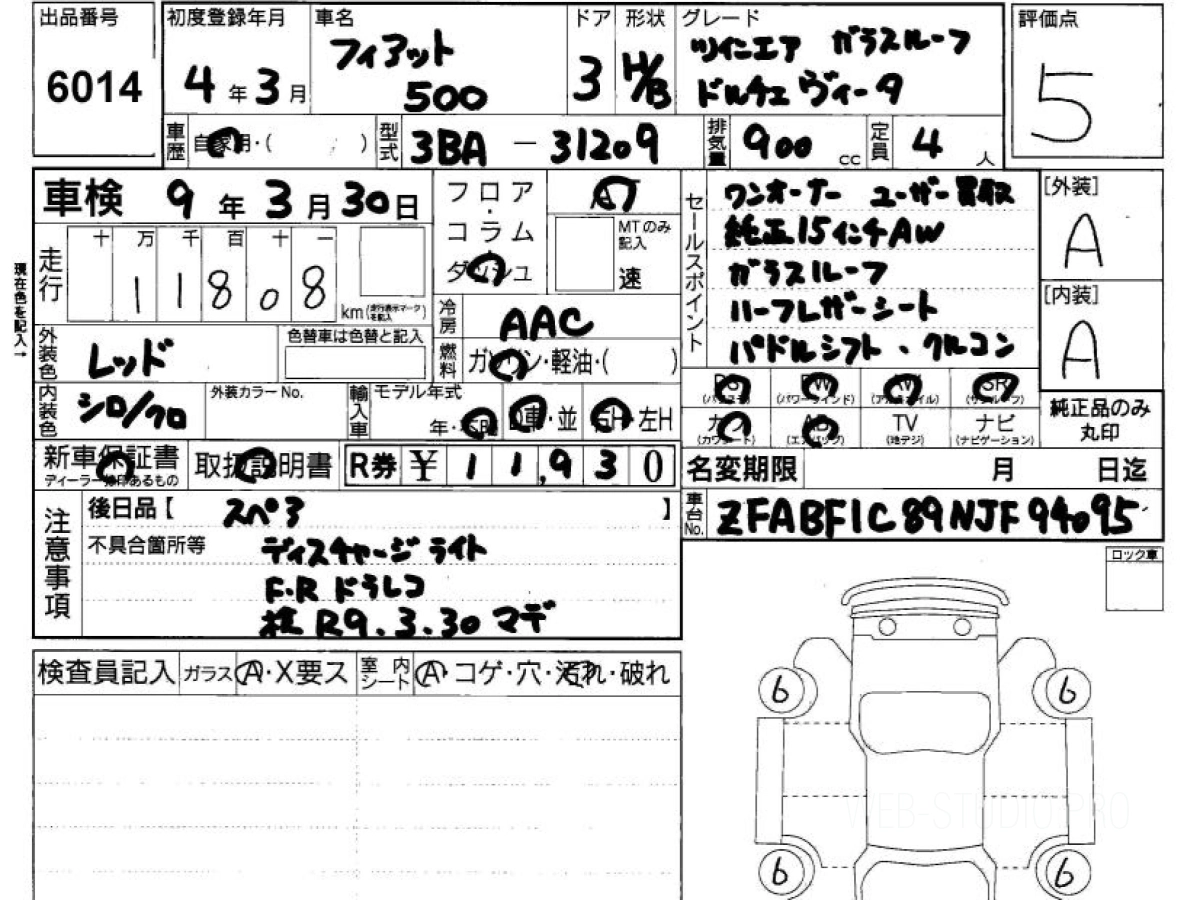 出品番号
6014
初度登録年月
4年3月
車名
フィアット
500
ドア
3
形状
H/B
グレード
ツインエア ガラスルーフ
ドルチェ ヴィータ
評価点
5
車歴
自家用・( )
型式
3BA － 31209
排気量
900 cc
定員
4 人
車検 9年3月30日
フロア・コラム
ダッシュ
AT
MTのみ記入
速
セールスポイント
ワンオーナー ユーザー買取
純正15インチAW
ガラスルーフ
ハーフレザーシート
パドルシフト、クルコン
[外装]
A
[内装]
A
現在色を記入→
走行
十 万 千 百 十 一
1 1 8 0 8
km (走行表示マークを記入)
冷房
AAC
燃料
ガソリン・軽油・( )
外装色
レッド
色替車は色替と記入
内装色
シロ/クロ
外装カラーNo.
輸入車
モデル年式
年・不明
D車・並
右H・左H
PS
(パワステ)
PW
(パワーウインド)
AW
(アルミホイル)
SR
(サンルーフ)
カワ
(カワシート)
AB
(エアバッグ)
TV
(地デジ)
ナビ
(ナビゲーション)
純正品のみ
丸印
新車保証書
ディーラー捺印あるもの
取扱説明書
R券 ¥ 11,930
名変期限 月 日迄
車台No.
ZFABF1C89NJF94095
注意事項
後日品【 スペ3 】
不具合箇所等
ディスチャージライト
F.R ドラレコ
検 R9.3.30 マデ
ロック車
検査員記入
ガラス
A・X要ス
室内シート
A・コゲ・穴・汚れ・破れ
6
6
WEB-STUDIO.PRO
6
6